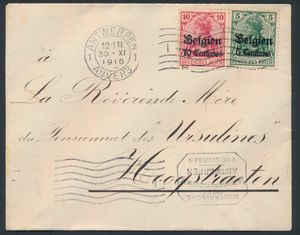 ANTWERPEN
1 12-1N 1
30·XI
1916
ANVERS
10 10
Belgien
10 Centimes
DEUTSCHES REICH
5 5
Belgien
5 Centimes
DEUTSCHES REICH
à
La Révérende Mère
du Pensionnat des "Ursulines"
Hoogstraeten
MILITÄRISCHE
ANTWERPEN
FREIGEGEBEN